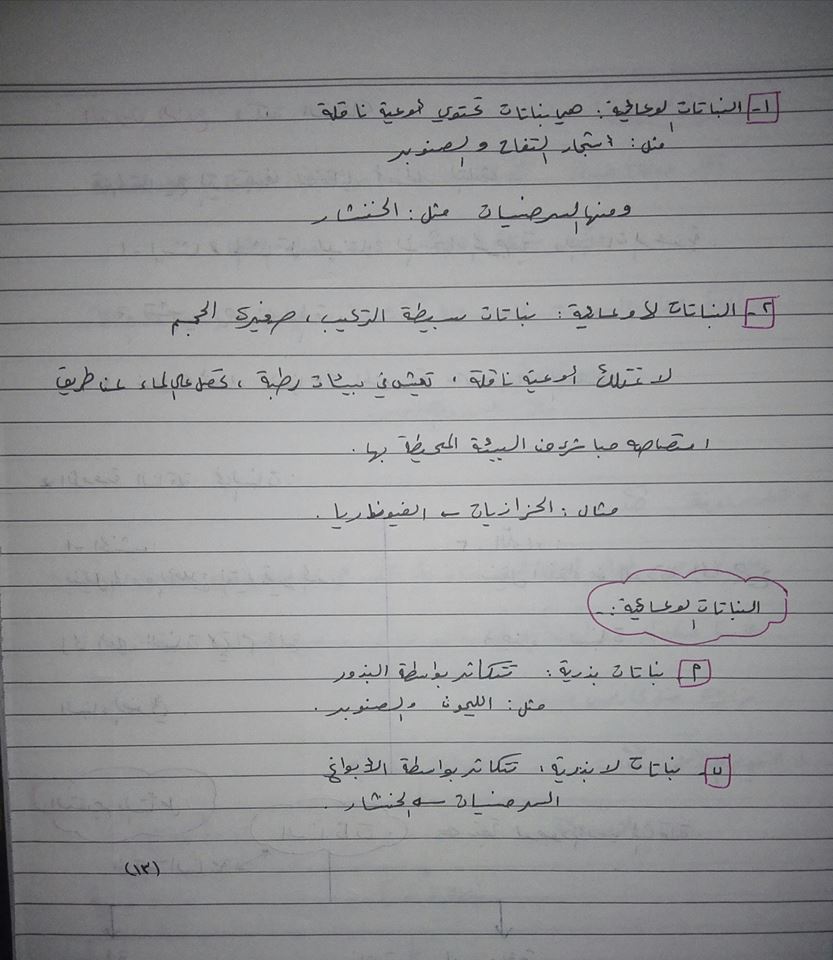 ١- النباتات الوعائية: هي نباتات تحتوي أوعية ناقلة .
مثل: أشجار التفاح والصنوبر
ومنها السرخسيات مثل: الخنشار
٢- النباتات اللاوعائية: نباتات بسيطة التركيب، صغيرة الحجم
لا تمتلك أوعية ناقلة، تعيش في بيئات رطبة، تحصل على الماء عن طريق
امتصاصه مباشرة من البيئة المحيطة بها.
مثال: الحزازيات ← الفيوناريا.
النباتات الوعائية:-
أ نباتات بذرية: تتكاثر بواسطة البذور
مثل: الليمون والصنوبر.
ب- نباتات لا بذرية: تتكاثر بواسطة الأبواغ
السرخسيات ← الخنشار.
(١٣)